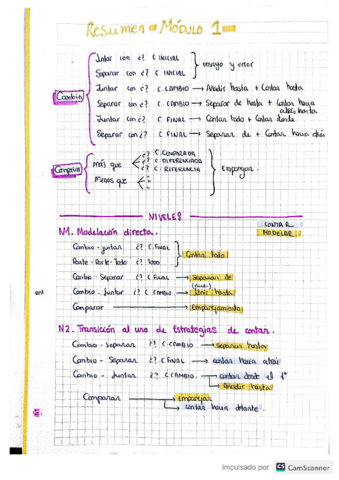 Resumen - Módulo 1
Juntar con ¿? C INICIAL
Separar con ¿? C INICIAL
ensayo y error
Cambio
Juntar con ¿? C. CAMBIO → Añadir hasta + Contar hasta
Separar con ¿? C. CAMBIO → Separar de hasta + Contar hacia atrás hasta
Juntar con ¿? C FINAL → Contar todo + Contar desde
Separar con ¿? C FINAL → Separar de + Contar hacia atrás
Comparar
más que
menos que
¿? C. COMPARADA
¿? C. DIFERENCIADA
¿? C. REFERENCIA
Emparejar.
NIVELES
CONTAR
MODELAR
N1. Modelación directa.
Cambio - juntar ¿? C FINAL
Parte - Parte - Todo ¿? TODO
Contar todo
Cambio - Separar ¿? C FINAL → Separar de
Cambio - Juntar ¿? C CAMBIO → Añadir hasta
Comparar → Emparejamiento
N2. Transición al uso de Estrategias de contar.
Cambio - separar ¿? C. CAMBIO → separar hasta
Cambio - Separar ¿? C FINAL → contar hacia atrás
Cambio - Juntar ¿? C CAMBIO. → contar desde el 1º
→ Añadir hasta
Comparar → Emparejar
→ contar hacia delante.
Impulsado por CS CamScanner